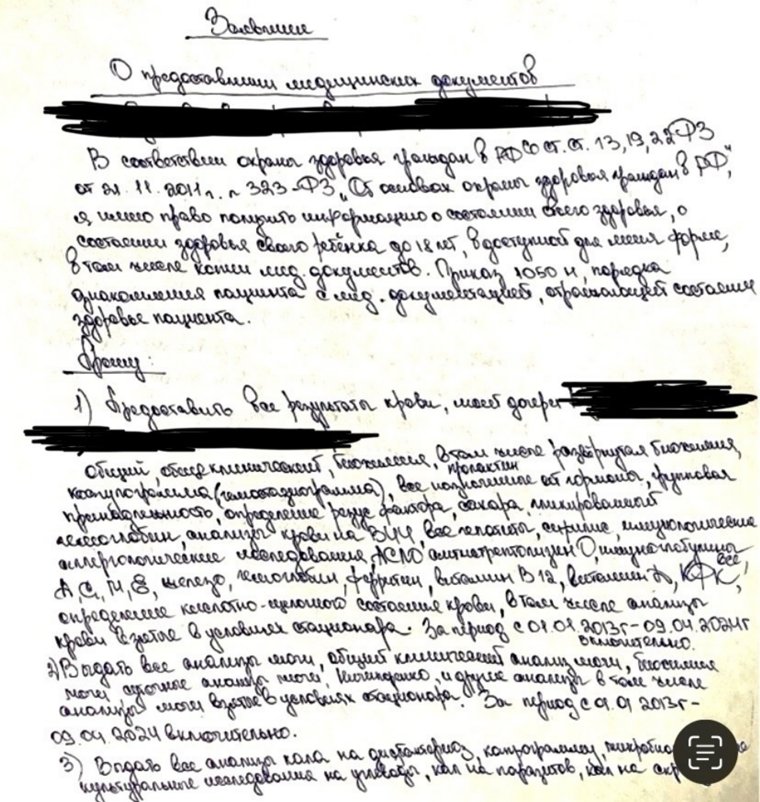 Заявление
О предоставлении медицинских документов
В соответствии охраны здоровья граждан в РФ со ст.ст. 13, 19, 22 ФЗ
от 21.11.2011г. n 323-ФЗ „Об основах охраны здоровья граждан в РФ",
я имею право получить информацию о состоянии своего здоровья, о
состоянии здоровья своего ребёнка до 18 лет, в доступной для меня форме,
в том числе копии мед. документов. Приказ 1050 н, порядка
ознакомления пациента с мед. документацией, отражающей состояние
здоровье пациента.
Прошу:
1) Предоставить все результаты крови, моей дочери
общий, общеклинический, биохимия, в том числе развёрнутая биохимия,
пролактин
коагулограмма (гемостазиограмма), все назначенные гормоны, групповая
принадлежность, определение резус фактора, сахара, гликированный
гемоглобин, анализы крови на ВИЧ, все гепатиты, сифилис, иммунологические
аллергологические исследования, АСЛО антистрептолизин О, иммуноглобулины
все
A, G, M, E, железо, гемоглобин, ферритин, витамин B12, витамин Д, КФК,
определение кислотно-щелочного состояния крови, в том числе анализы
крови взятые в условиях стационара. За период с 01.01 2013г - 09.04.2024г
включительно.
2) Выдать все анализы мочи, общий клинический анализ мочи, биохимия
мочи суточные анализы мочи, Нечипоренко, и другие анализы в том числе
анализы мочи взятые в условиях стационара. За период с 01.01 2013г -
09.04.2024 включительно.
3) Выдать все анализы кала на дисбактериоз, копрограмму,
культуральные исследования на углеводы, кал на паразитов, кал на